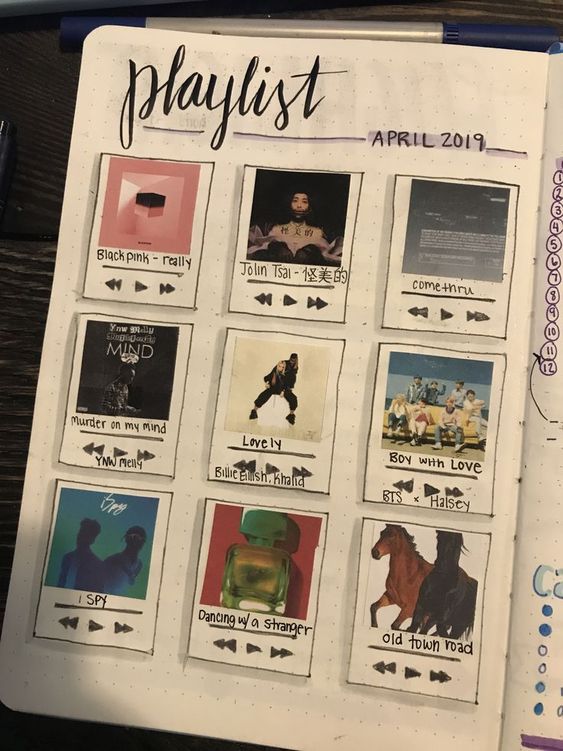 playlist
APRIL 2019
Blackpink - really
Jolin Tsai - 怪美的
怪美的
come thru
YNW Melly
MIND
Murder on my mind
YNW Melly
Lovely
Billie Eilish, Khalid
Boy with Love
BTS x Halsey
iSpy
I SPY
Dancing w/ a Stranger
old town road
1
2
3
4
5
6
7
8
9
10
11
12